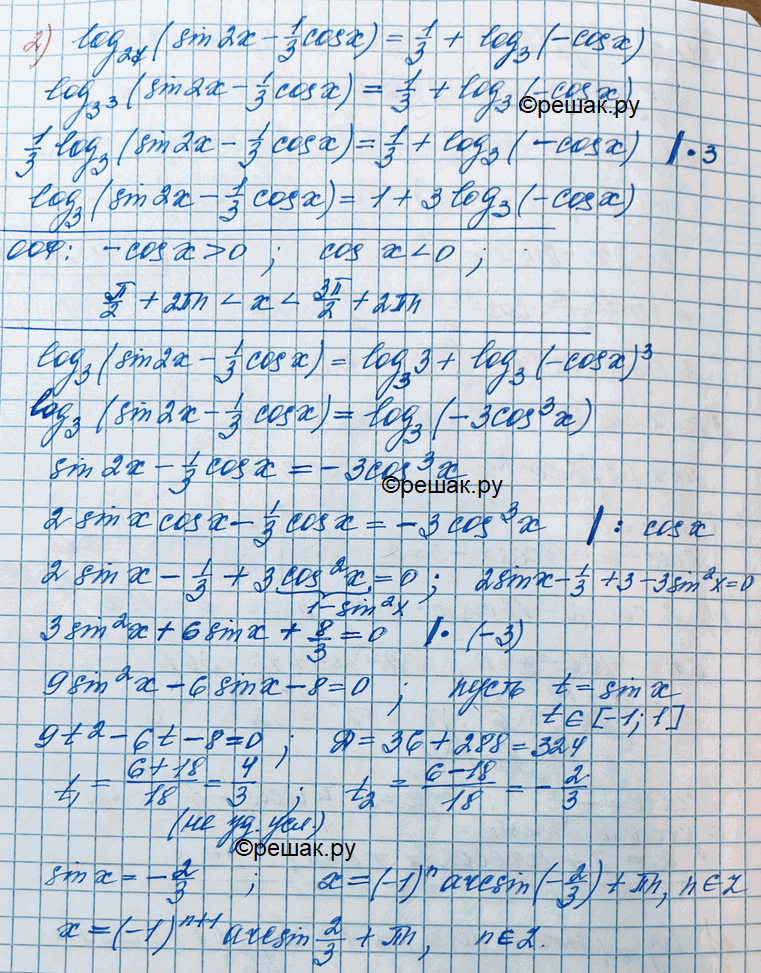 2) log₂₇(sin2x - 1/3 cosx) = 1/3 + log₃(-cosx)
log₃³(sin2x - 1/3 cosx) = 1/3 + log₃(-cosx)
©решак.ру
1/3 log₃(sin2x - 1/3 cosx) = 1/3 + log₃(-cosx) |·3
log₃(sin2x - 1/3 cosx) = 1 + 3log₃(-cosx)
ООФ: -cosx>0 ; cosx<0 ;
π/2 + 2πn < x < 3π/2 + 2πn
log₃(sin2x - 1/3 cosx) = log₃3 + log₃(-cosx)³
log₃(sin2x - 1/3 cosx) = log₃(-3cos³x)
sin2x - 1/3 cosx = -3cos³x
©решак.ру
2sinxcosx - 1/3 cosx = -3cos³x |: cosx
2sinx - 1/3 + 3cos²x = 0 ; 2sinx - 1/3 + 3 - 3sin²x = 0
1-sin²x
3sin²x + 6sinx + 8/3 = 0 |·(-3)
9sin²x - 6sinx - 8 = 0 ; пусть t = sinx
t∈[-1; 1]
9t² - 6t - 8 = 0 ; D = 36 + 288 = 324
t₁ = (6+18)/18 = 4/3 ; t₂ = (6-18)/18 = -2/3
(не уд. усл.)
©решак.ру
sinx = -2/3 ; x = (-1)ⁿ arcsin(-2/3) + πn, n∈Z
x = (-1)ⁿ⁺¹ arcsin 2/3 + πn, n∈Z.